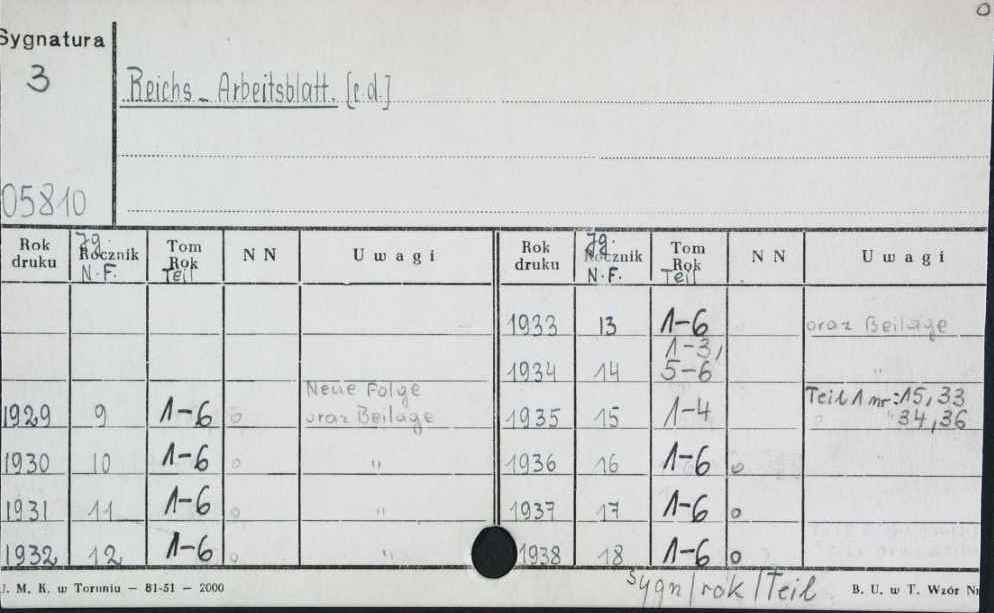 Sygnatura
3
Reichs-Arbeitsblatt. [e.d.]
05810
Rok druku Jg. Rocznik N.F. Tom Rok Teil NN Uwagi Rok druku Jg. Rocznik N.F. Tom Rok Teil NN Uwagi
1933 13 1-6 oraz Beilage
1934 14 1-3, 5-6 "
Neue Folge
1929 9 1-6 o oraz Beilage 1935 15 1-4 Teil 1 nr: 15, 33
" 34, 36
1930 10 1-6 o " 1936 16 1-6 o
1931 11 1-6 o " 1937 17 1-6 o
1932 12 1-6 o " 1938 18 1-6 o
U. M. K. w Toruniu — 81-51 — 2000 Sygn/rok/Teil B. U. w T. Wzór Nr